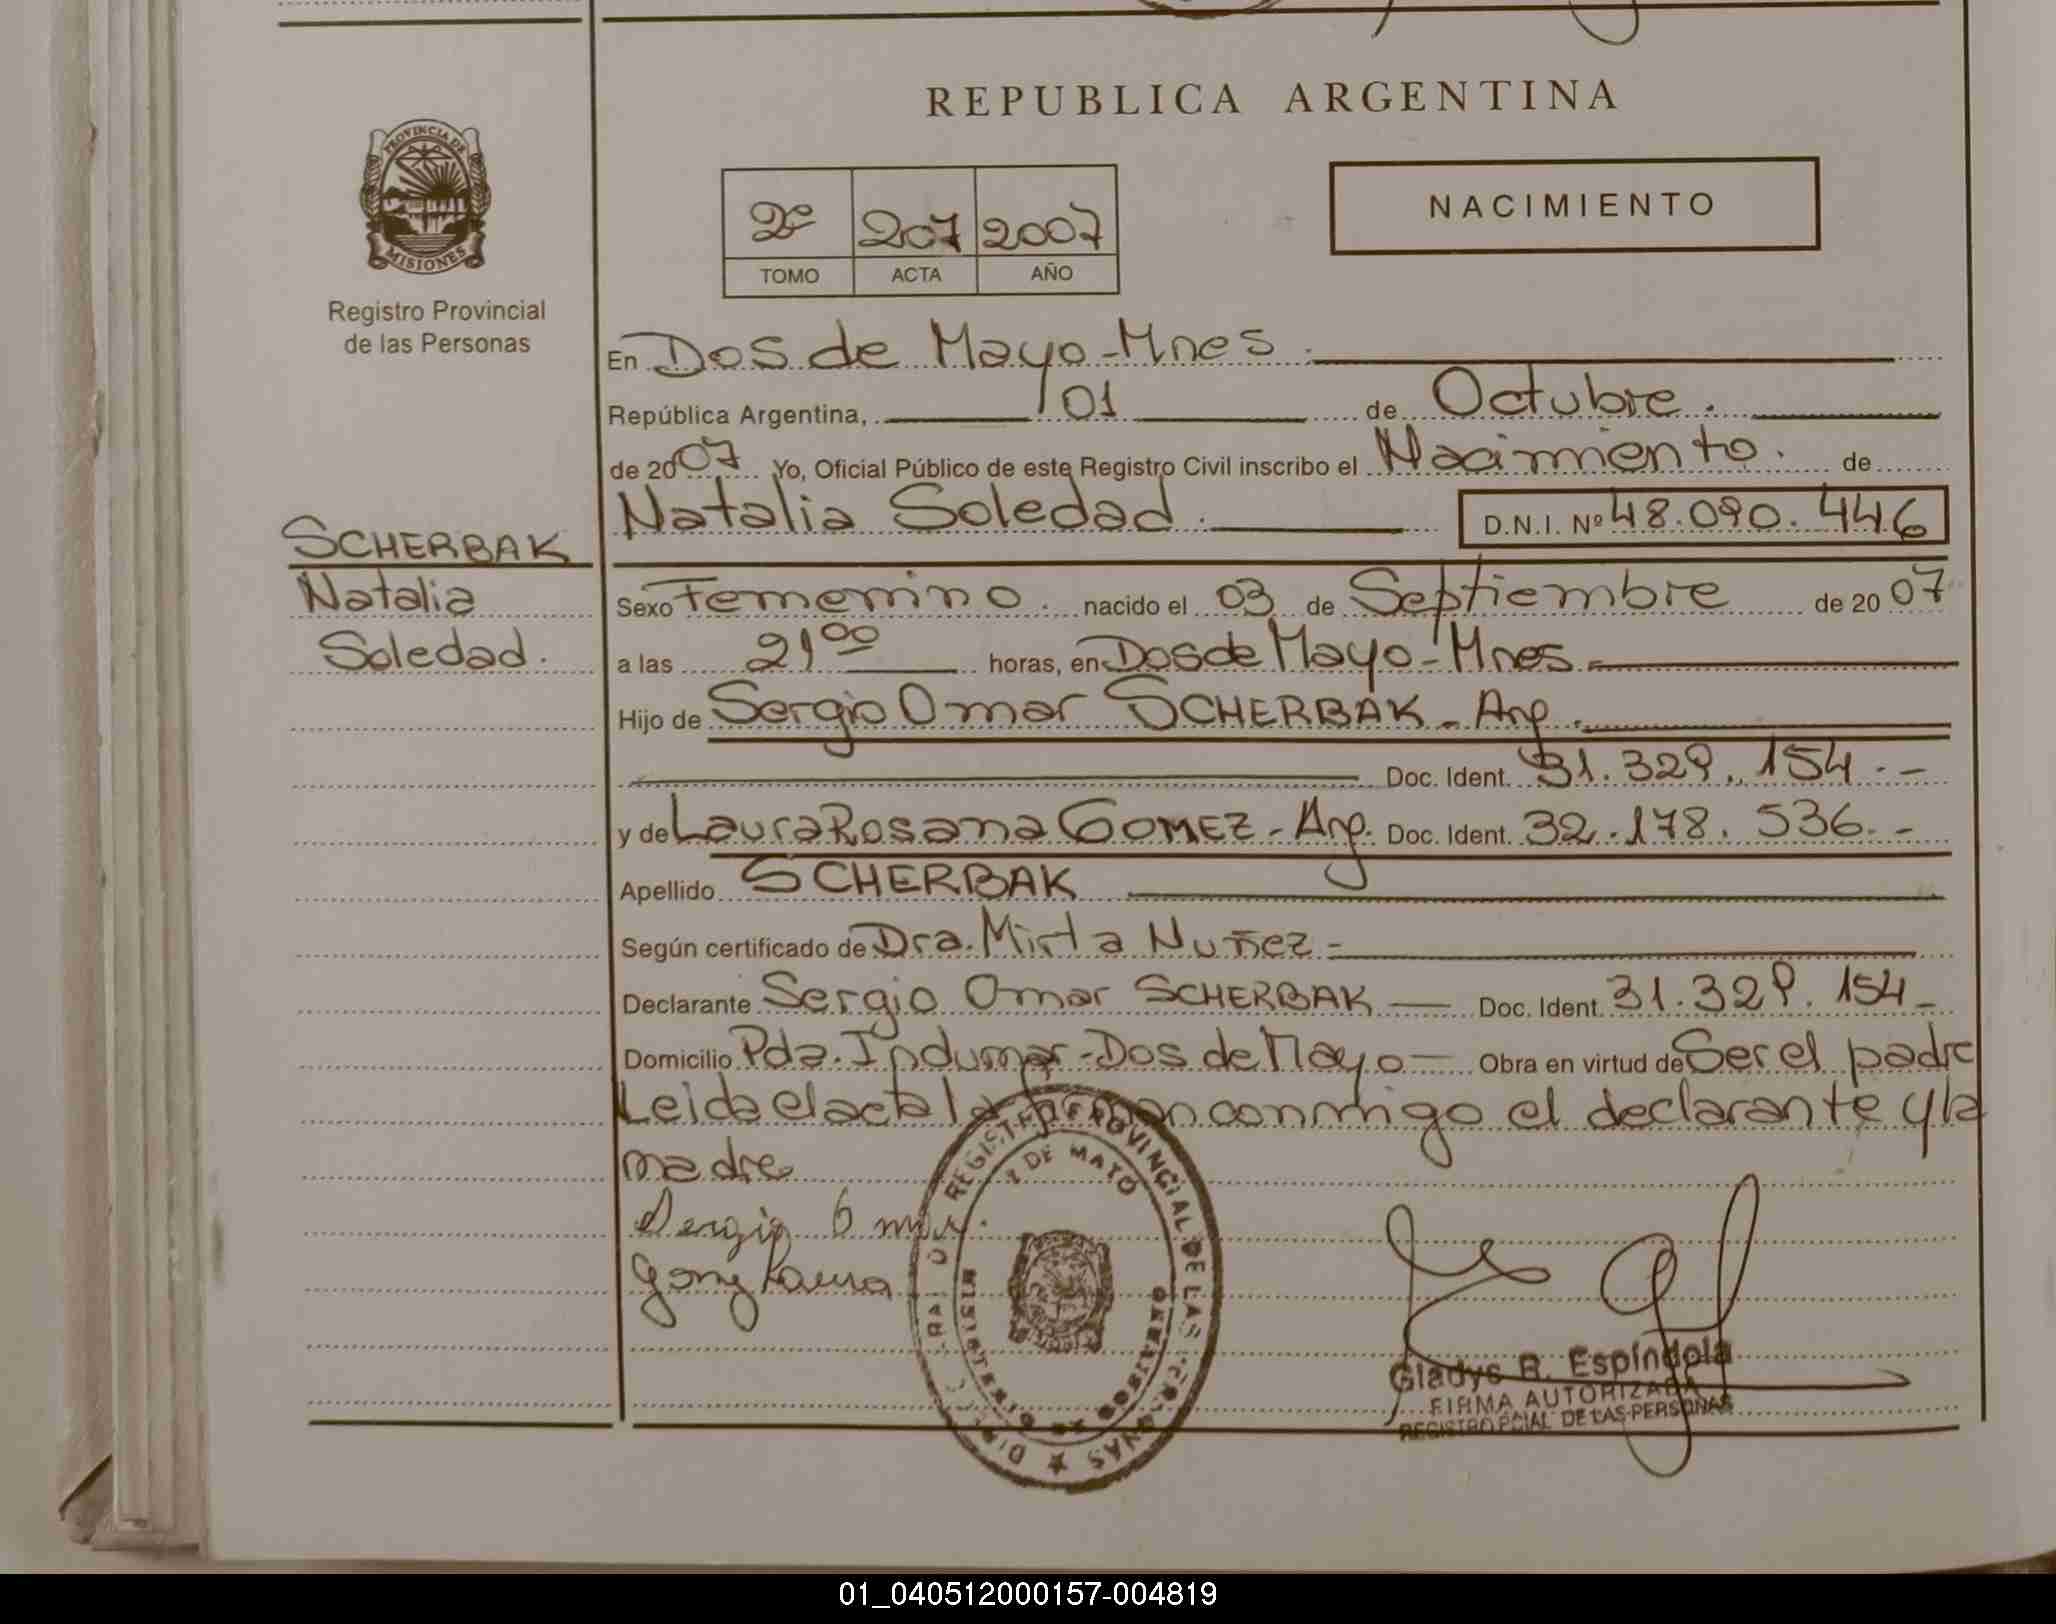 REPUBLICA ARGENTINA
PROVINCIA DE
MISIONES
Registro Provincial
de las Personas
2º 207 2007
TOMO ACTA AÑO
NACIMIENTO
En Dos de Mayo - Mnes
República Argentina, 01 de Octubre.
de 2007 Yo, Oficial Público de este Registro Civil inscribo el Nacimiento. de
Natalia Soledad. D.N.I. Nº 48.090.446
SCHERBAK
Natalia
Soledad.
Sexo Femenino. nacido el 03 de Septiembre de 2007
a las 21⁰⁰ horas, en Dos de Mayo - Mnes.
Hijo de Sergio Omar SCHERBAK - Arg.
Doc. Ident. 31.329.154.-
y de Laura Rosana GOMEZ - Arg. Doc. Ident. 32.178.536.-
Apellido SCHERBAK
Según certificado de Dra. Mirta Nuñez -
Declarante Sergio Omar SCHERBAK — Doc. Ident. 31.329.154-
Domicilio Pda. Indumar - Dos de Mayo — Obra en virtud de Ser el padre
Leida el acta la firman conmigo el declarante y la
madre
Sergio Omar.
Gomez Laura
REGISTRO PROVINCIAL DE LAS PERSONAS
2 DE MAYO
MINISTERIO DE GOBIERNO
Gladys R. Espíndola
FIRMA AUTORIZADA
REGISTRO PCIAL DE LAS PERSONAS
01_040512000157-004819